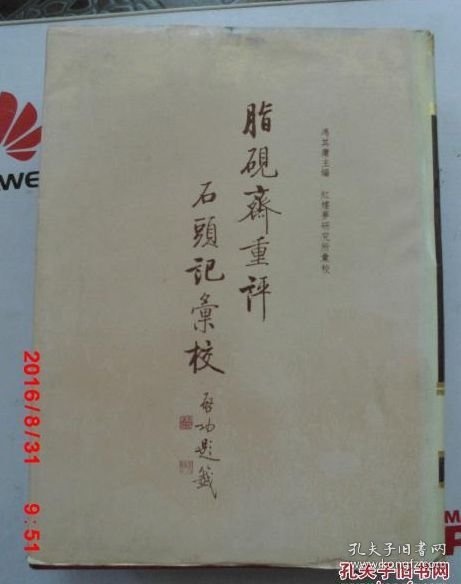 馮其庸主編 紅樓夢研究所彙校
脂硯齋重評
石頭記彙校
啓功題籤
2016/8/31 9:51
WE
MA
P
孔夫子旧书网
孔夫子旧书网